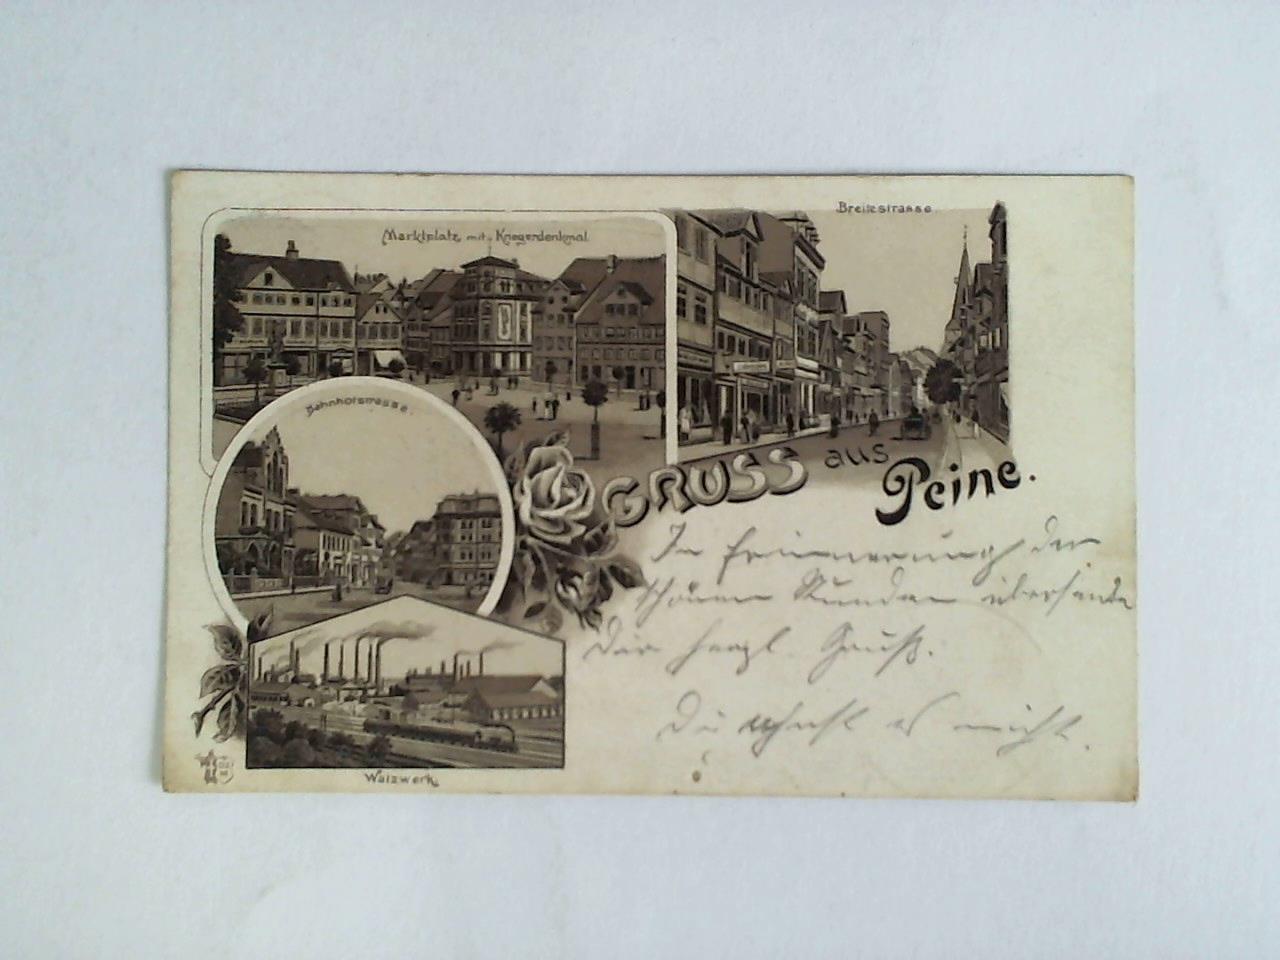 Marktplatz mit Kriegerdenkmal
Breitestrasse
Bahnhofstrasse.
GRUSS aus Peine.
In Erinnerung der
schönen Stunden übersende
Dir herzl. Gruß.
Du es nicht.
Walzwerk